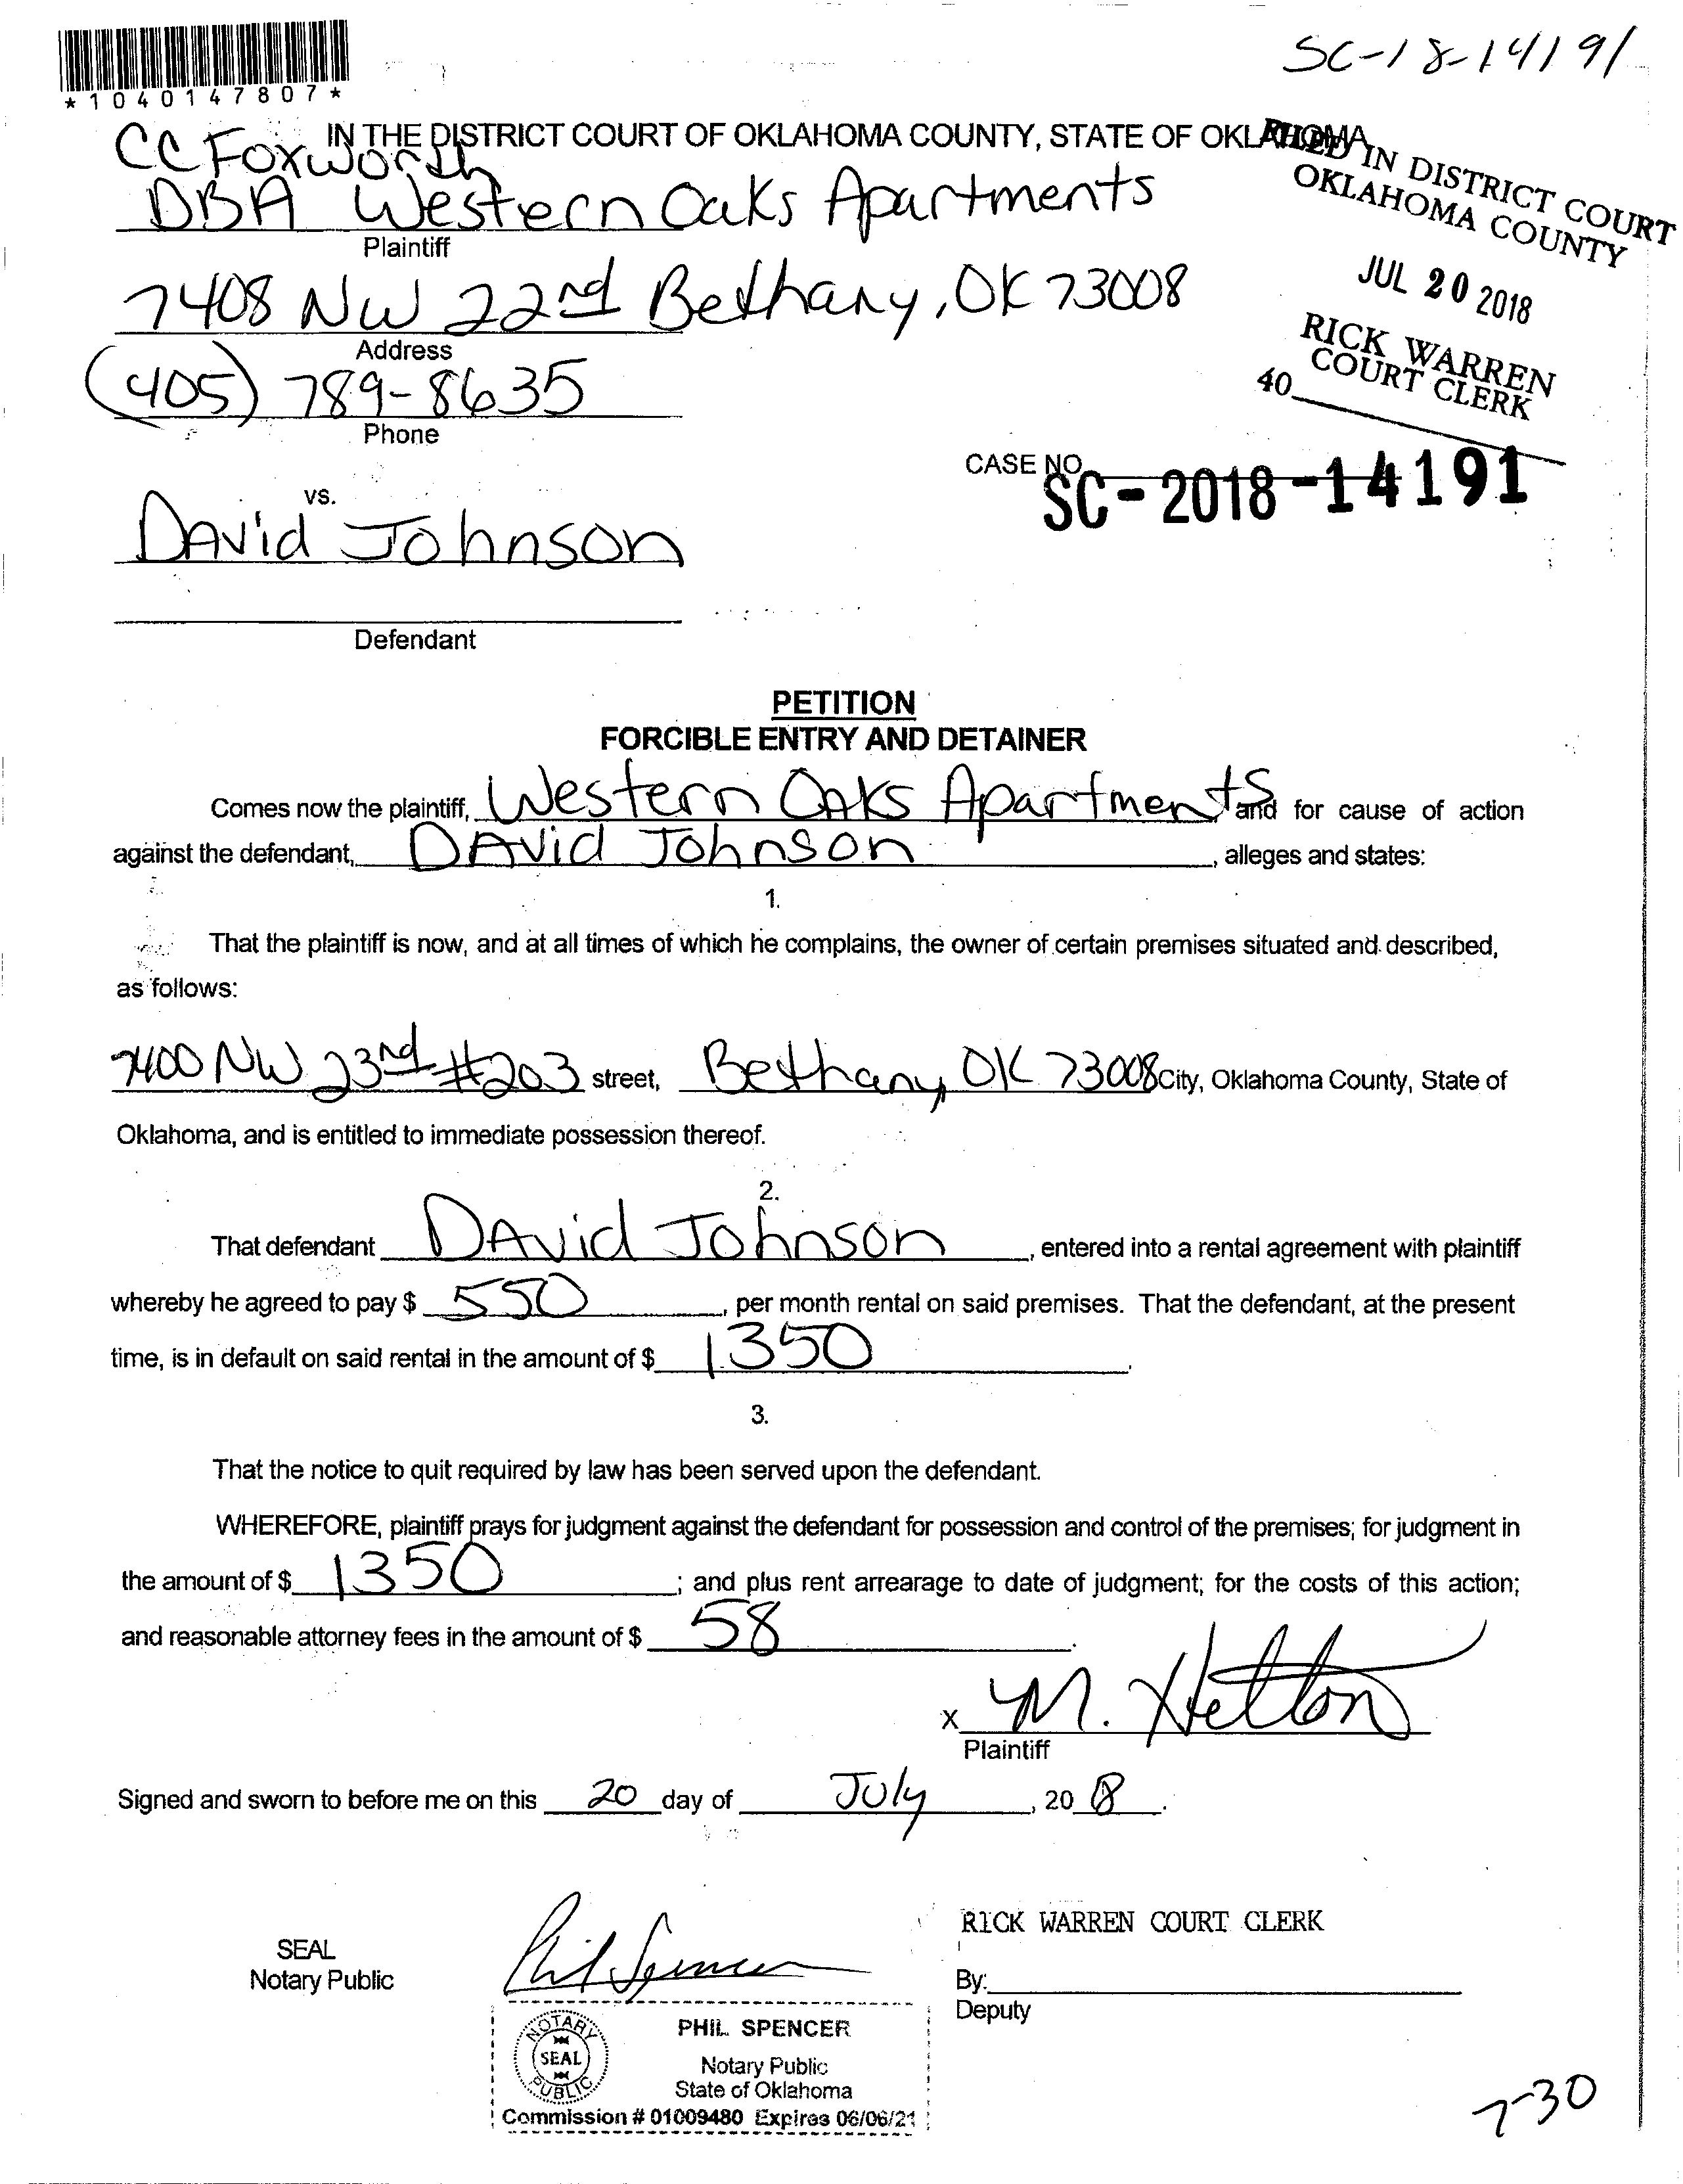 *1040147807*
SC-18-14191
IN THE DISTRICT COURT OF OKLAHOMA COUNTY, STATE OF OKLAHOMA
FILED IN DISTRICT COURT
OKLAHOMA COUNTY
JUL 20 2018
RICK WARREN
COURT CLERK
40
CC Foxworth
DBA Western Oaks Apartments
Plaintiff
7408 NW 22nd Bethany, OK 73008
Address
(405) 789-8635
Phone
CASE NO.
SC-2018-14191
vs.
DAvid Johnson
Defendant
PETITION
FORCIBLE ENTRY AND DETAINER
Comes now the plaintiff, Western Oaks Apartments and for cause of action
against the defendant, DAvid Johnson, alleges and states:
1.
That the plaintiff is now, and at all times of which he complains, the owner of certain premises situated and described,
as follows:
7400 NW 23rd #203 street, Bethany, OK 73008 City, Oklahoma County, State of
Oklahoma, and is entitled to immediate possession thereof.
2.
That defendant DAvid Johnson, entered into a rental agreement with plaintiff
whereby he agreed to pay $ 550, per month rental on said premises. That the defendant, at the present
time, is in default on said rental in the amount of $ 1350.
3.
That the notice to quit required by law has been served upon the defendant.
WHEREFORE, plaintiff prays for judgment against the defendant for possession and control of the premises; for judgment in
the amount of $ 1350; and plus rent arrearage to date of judgment; for the costs of this action;
and reasonable attorney fees in the amount of $ 58.
x M. Helton
Plaintiff
Signed and sworn to before me on this 20 day of July, 20 18.
RICK WARREN COURT CLERK
SEAL
Notary Public
Phil Spencer
By:
Deputy
NOTARY
SEAL
PUBLIC
PHIL SPENCER
Notary Public
State of Oklahoma
Commission # 01009480 Expires 06/06/21
7-30